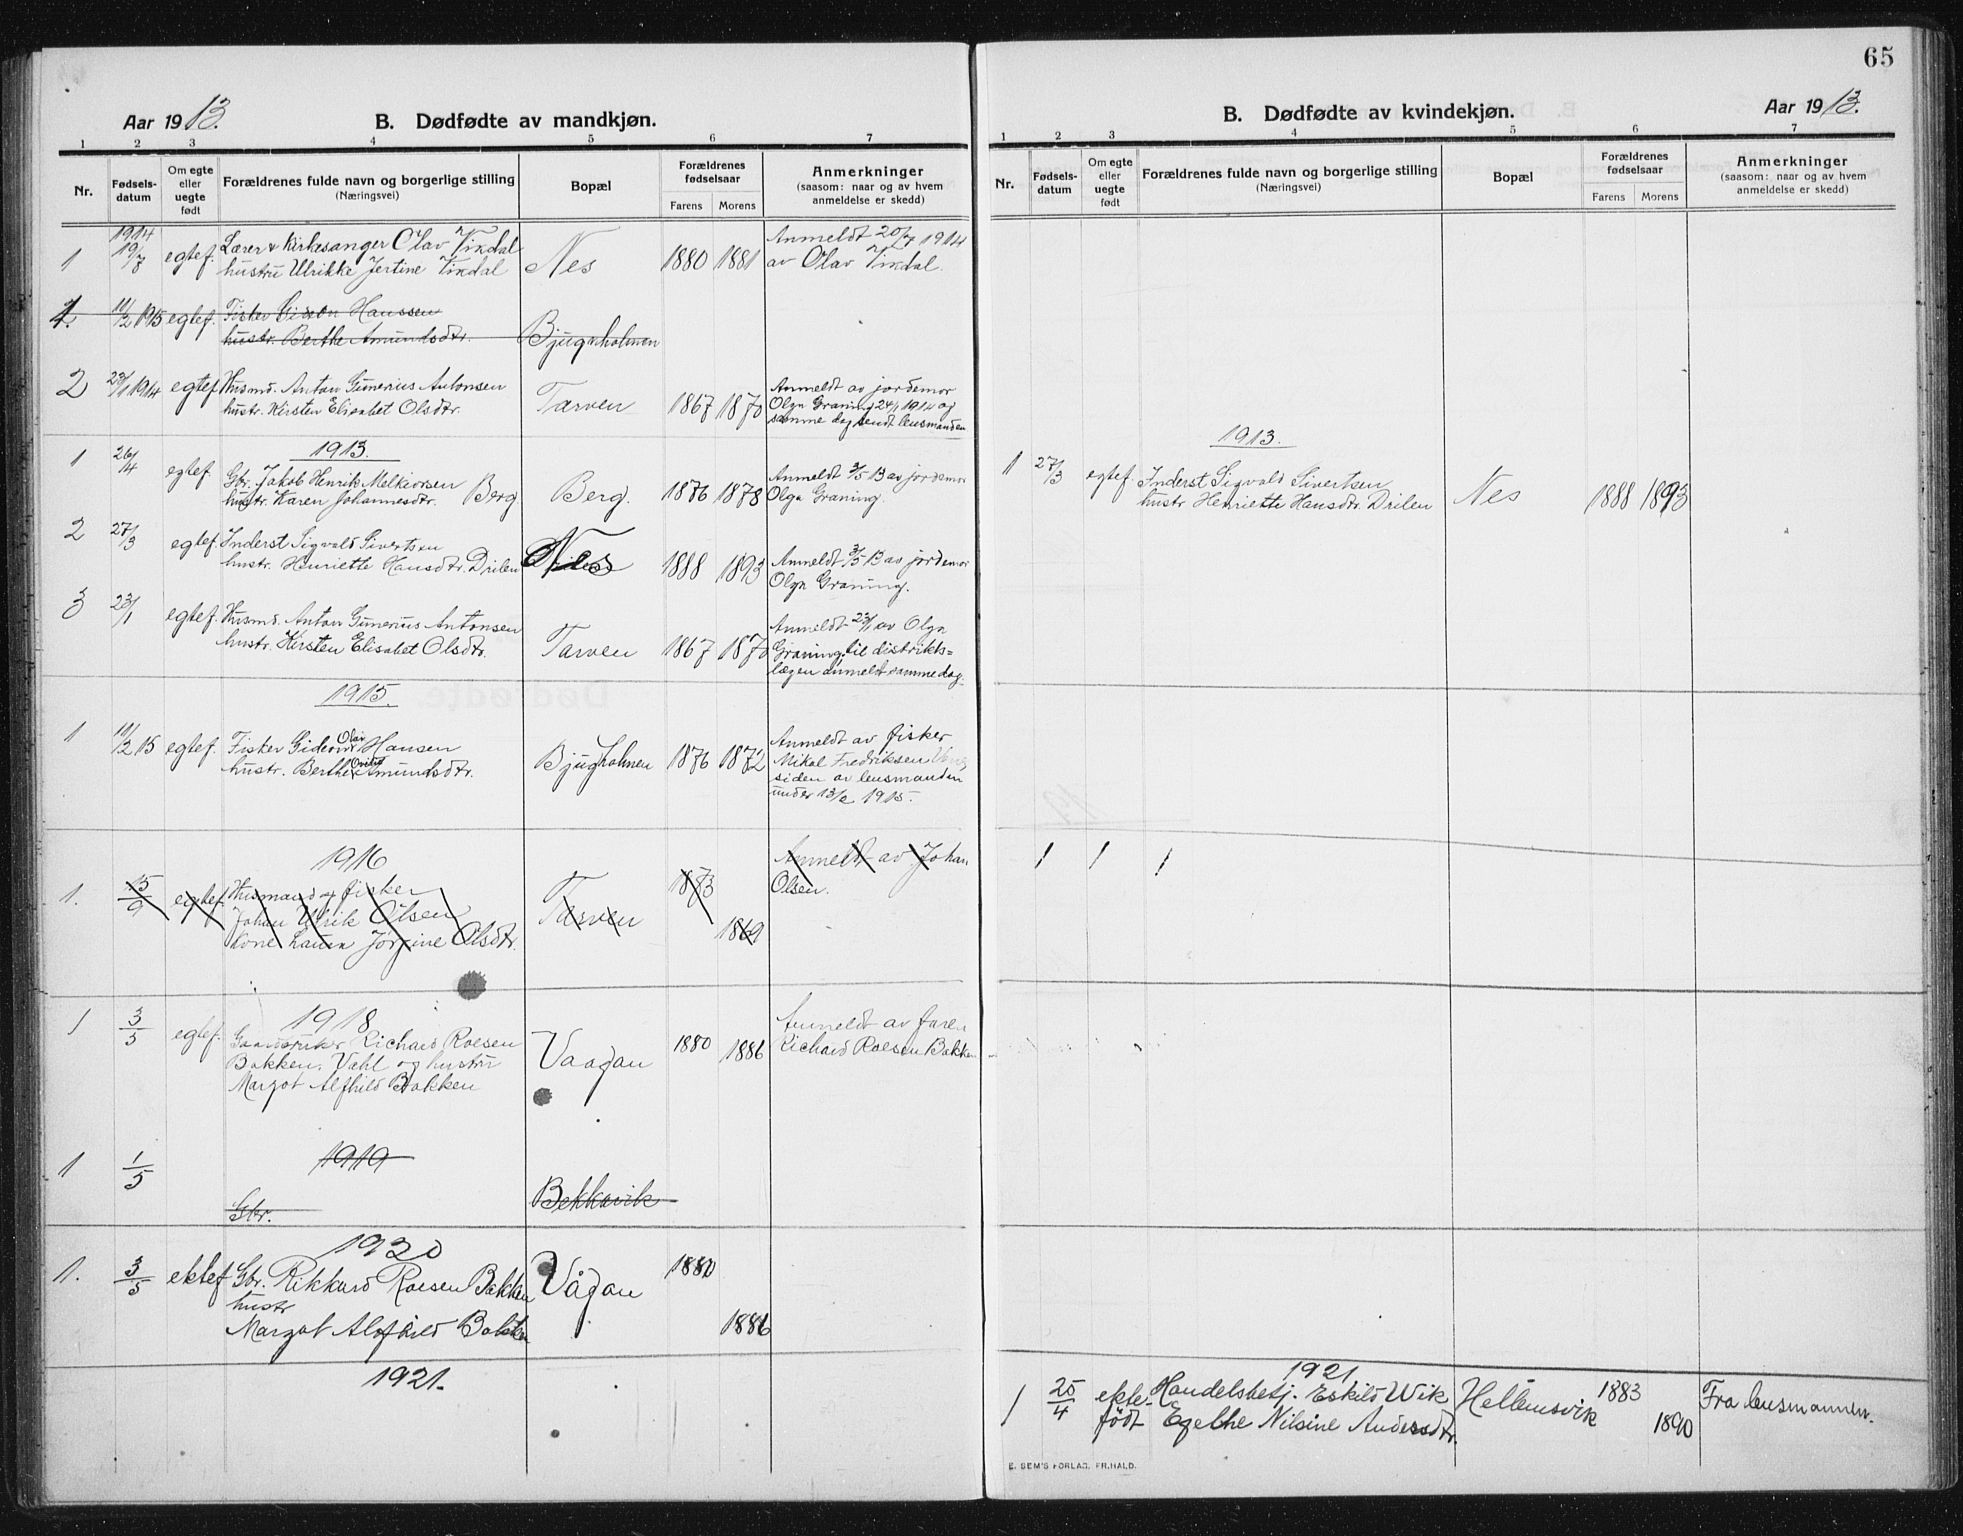 65
Aar 1913.
B. Dødfødte av mandkjøn.
1 2 3 4 5 6 7
Nr.
Fødsels-
datum
Om egte
eller
uegte
født
Forældrenes fulde navn og borgerlige stilling
(Næringsvei)
Bopæl
Forældrenes
fødselsaar
Farens Morens
Anmerkninger
(saasom: naar og av hvem
anmeldelse er skedd)
1914
1 19/8 egtef. Lærer & Kirkesanger Olav Vindal Nes 1880 1881 Anmeldt 1914
hustru Ulrikke Jertine Vindal av Olav Vindal.
11/2 1915 egtef. Fisker Hanssen
hustr. Berthe Amundsdtr. Bjugnholmen
2 23/1 1914 egtef. Husmd. Anton Gunerius Antonsen Tarven 1867 1870 Anmeldt av jordemor
hustr. Kirsten Elisabet Olsdtr. Olga Graning 24/1 1914 og
samme dag sendt lensmanden
1913.
1 26/4 egtef. Gbr. Jakob Henrik Melkiorsen Berg. 1876 1878 Anmeldt 3/5 13 av jordemor
hustr. Karen Johannesdtr. Berg Olga Graning.
2 27/3 egtef. Inderst Sigvald Sivertsen Nes 1888 1893 Anmeldt 3/5 13 av jordemor
hustr. Henriette Hansdtr. Drilen Olga Graning.
3 23/1 egtef. Husmd. Anton Gunerius Antonsen Tarven 1867 1870 Anmeldt 23/1 av Olga
hustr. Kirsten Elisabet Olsdtr. Graning. til distrikts-
lægen anmeldt samme dag.
1915.
1 11/2 15 egtef. Fisker Gideon Olav Hansen Bjugholmen 1876 1872 Anmeldt av fisker
hustr. Berthe Amundsdtr. Mikal Fredriksen
siden av lensmanden
under 13/2 1915.
1916
1. 15/9 egtef. Husmand og fisker Tarven 1873 Anmeldt av Johan
Johan Ulrik Olsen Olsen.
Kone Laura Jørgine Olsdtr. 1869
1918
1 3/5 egtef. Gaardbruker Richard Roesen Vaagan 1880 1886 Anmeldt av faren
Bakken, Vahl og hustru Richard Roesen Bakken
Margot Alfhild Bakken
1919
1 1/5 Gbr. Bekkavik
1920
1. 3/5 ektef. Gbr. Rikkard Roesen Bakken Vågan 1880
hustr
Margot Alofhild Bakken 1886
1921.
Aar 1913.
B. Dødfødte av kvindekjøn.
1 2 3 4 5 6 7
Nr.
Fødsels-
datum
Om egte
eller
uegte
født
Forældrenes fulde navn og borgerlige stilling
(Næringsvei)
Bopæl
Forældrenes
fødselsaar
Farens Morens
Anmerkninger
(saasom: naar og av hvem
anmeldelse er skedd)
1913.
1 27/3 egtef. Inderst Sigvald Sivertsen Nes 1888 1893
hustr Henriette Hansdtr. Drilen
1 1 1
1921
1 25/4 ekte- Handelsbetj. Eskild Wik Hellemsvik 1883 Fra lensmannen.
født Egelhe Nilsine Andersdtr. 1890
E. SEM'S FORLAG, FR.HALD.